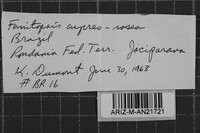 Fomitopsis cupreo-rosea
Brazil
Rondania Fed. Terr. Jacigarava
K. Dumont June 30, 1968
# BR 16
ARIZ-M-AN21721